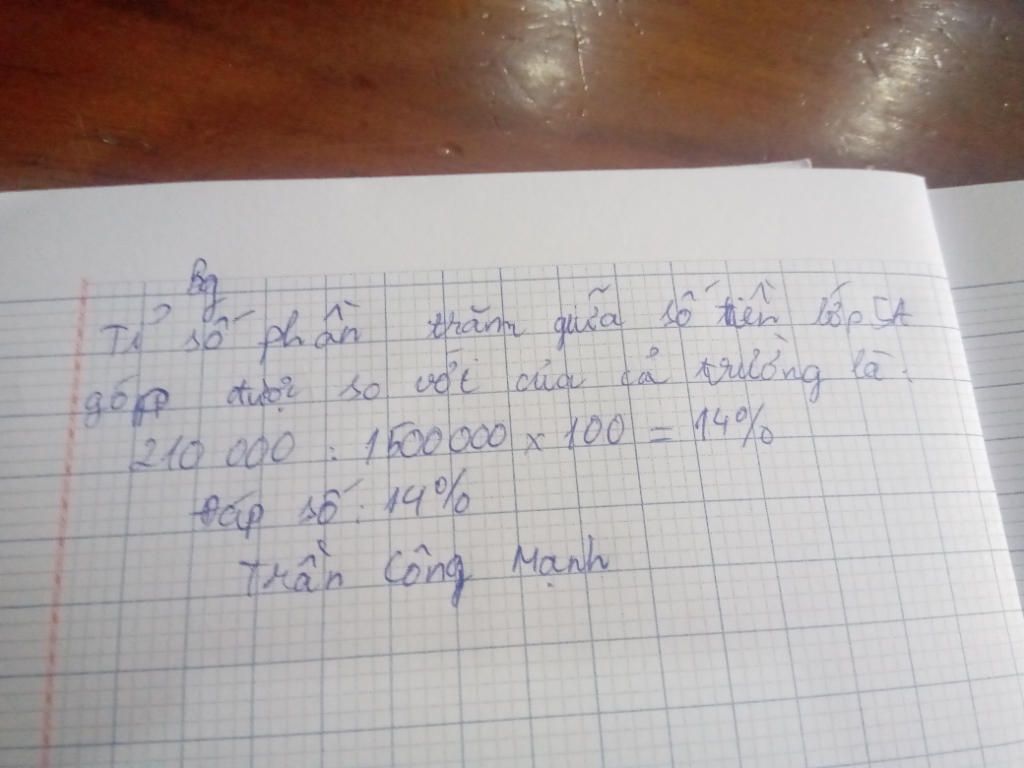 Bg
Tỉ số phần trăm giữa số tiền lớp 5A
góp được so với của cả trường là:
210 000 : 1500 000 x 100 = 14%
Đáp số: 14%
Trần Công Mạnh